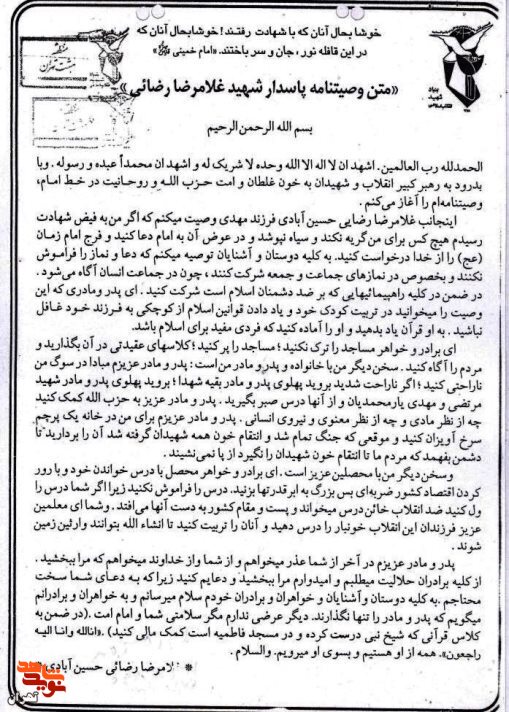 خوشا بحال آنان که با شهادت رفتند! خوشابحال آنان که
در این قافله نور، جان و سر باختند. «امام خمینی»
«متن وصیتنامه پاسدار شهید غلامرضا رضائی»
بسم الله الرحمن الرحیم
الحمدلله رب العالمین. اشهد ان لا اله الا الله وحده لا شریک له و اشهد ان محمداً عبده و رسوله. وبا
بدرود به رهبر کبیر انقلاب و شهیدان به خون غلطان و امت حزب الله و روحانیت در خط امام،
وصیتنامه‌ام را آغاز می‌کنم.
اینجانب غلامرضا رضایی حسین آبادی فرزند مهدی وصیت میکنم که اگر من به فیض شهادت
رسیدم هیچ کس برای من گریه نکند و سیاه نپوشد و در عوض آن به امام دعا کنید و فرج امام زمان
(عج) را از خدا درخواست کنید. به کلیه دوستان و آشنایان توصیه میکنم که دعا و نماز را فراموش
نکنند و بخصوص در نمازهای جماعت و جمعه شرکت کنند، چون در جماعت انسان آگاه می‌شود.
در ضمن در کلیه راهپیمائیهایی که بر ضد دشمنان اسلام است شرکت کنید. ای پدر ومادری که این
وصیت را میخوانید در تربیت کودک خود و یاد دادن قوانین اسلام از کوچکی به فرزند خود غافل
نباشید. به او قرآن یاد بدهید و او را آماده کنید که فردی مفید برای اسلام باشد.
ای برادر و خواهر مساجد را ترک نکنید؛ مساجد را پر کنید؛ کلاسهای عقیدتی در آن بگذارید و
مردم را آگاه کنید. سخن دیگر من با خانواده و پدر و مادر من است: پدر و مادر عزیزم مبادا در سوگ من
ناراحتی کنید؛ اگر ناراحت شدید بروید پهلوی پدر و مادر بقیه شهدا؛ بروید پهلوی پدر و مادر شهید
مرتضی و مهدی یارمحمدیان و از آنها درس صبر بگیرید. پدر و مادر عزیز به حزب الله کمک کنید
چه از نظر مادی و چه از نظر معنوی و نیروی انسانی. پدر و مادر عزیزم برای من در خانه یک پرچم
سرخ آویزان کنید و موقعی که جنگ تمام شد و انتقام خون همه شهیدان گرفته شد آن را بردارید تا
دشمن بفهمد که مردم ما تا انتقام خون شهیدان را نگیرد از پا نمی‌نشیند.
وسخن دیگر من با محصلین عزیز است. ای برادر و خواهر محصل با درس خواندن خود و با رور
کردن اقتصاد کشور ضربه‌ای بس بزرگ به ابر قدرتها بزنید. درس را فراموش نکنید زیرا اگر شما درس را
ول کنید ضد انقلاب خائن درس میخواند و پست و مقام کشور به دست آنها می‌افتد. وشما ای معلمین
عزیز فرزندان این انقلاب خونبار را درس دهید و آنان را تربیت کنید تا انشاء الله بتوانند وارثین زمین
شوند.
پدر و مادر عزیزم در آخر از شما عذر میخواهم و از شما و از خداوند میخواهم که مرا ببخشید.
از کلیه برادران حلالیت میطلبم و امیدوارم مرا ببخشید و دعایم کنید زیرا که به دعای شما سخت
محتاجم. به کلیه دوستان وآشنایان و خواهران و برادران خودم سلام میرسانم و به خواهران و برادرانم
میگویم که پدر و مادر را تنها نگذارند. دیگر عرضی ندارم مگر سلامتی شما و امام امت. (در ضمن به
کلاس قرآنی که شیخ نبی درست کرده و در مسجد فاطمیه است کمک مالی کنید). «انالله وانا الیه
راجعون». همه از او هستیم و بسوی او میرویم. والسلام.
* غلامرضا رضائی حسین آبادی *
بنیاد
شهید
نوید شاهد
تهران